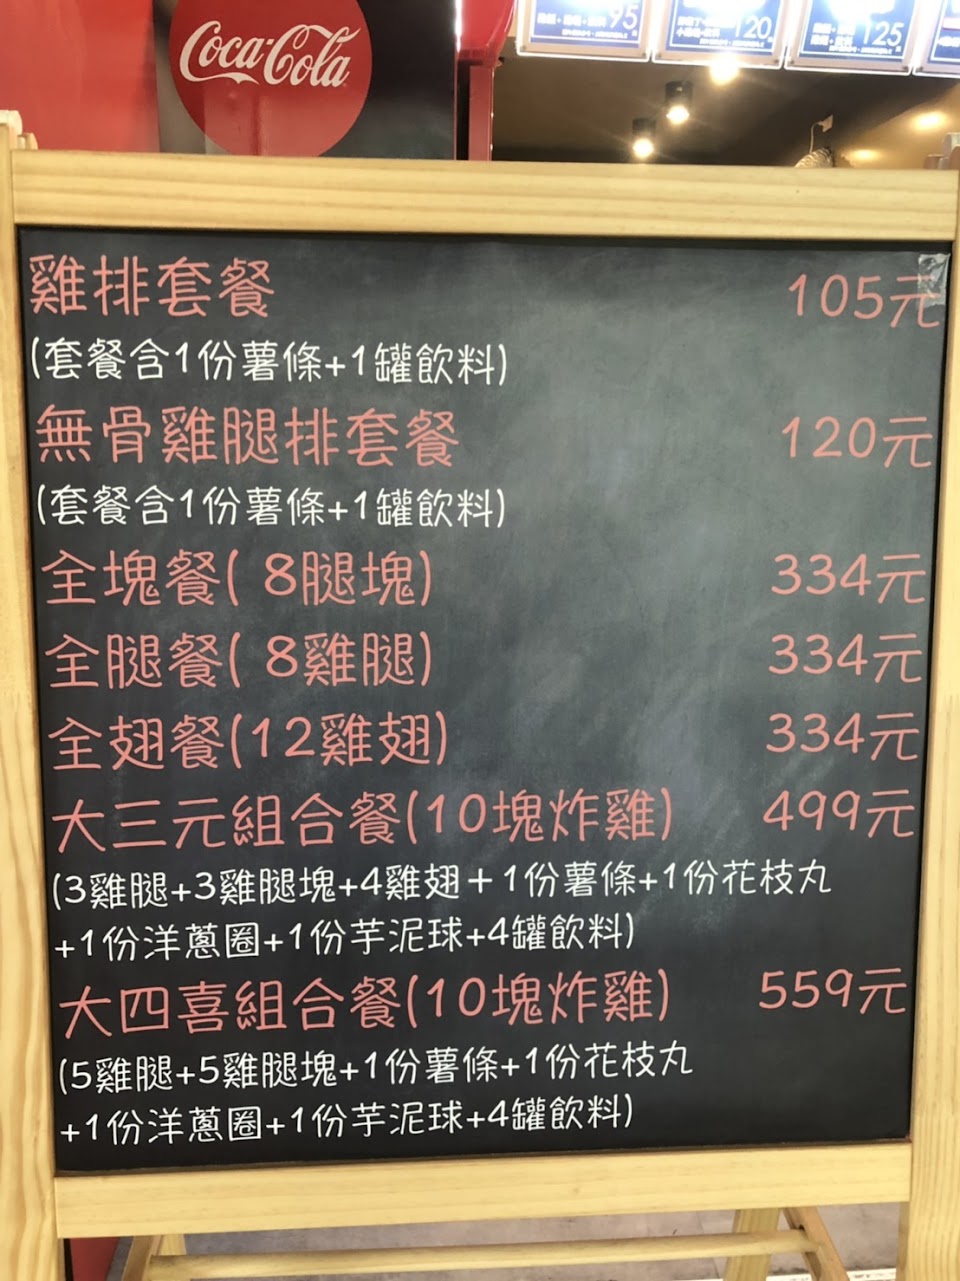 Coca-Cola
95
120
125
雞排套餐 105元
(套餐含1份薯條+1罐飲料)
無骨雞腿排套餐 120元
(套餐含1份薯條+1罐飲料)
全塊餐( 8腿塊) 334元
全腿餐( 8雞腿) 334元
全翅餐(12雞翅) 334元
大三元組合餐(10塊炸雞) 499元
(3雞腿+3雞腿塊+4雞翅+1份薯條+1份花枝丸
+1份洋蔥圈+1份芋泥球+4罐飲料)
大四喜組合餐(10塊炸雞) 559元
(5雞腿+5雞腿塊+1份薯條+1份花枝丸
+1份洋蔥圈+1份芋泥球+4罐飲料)